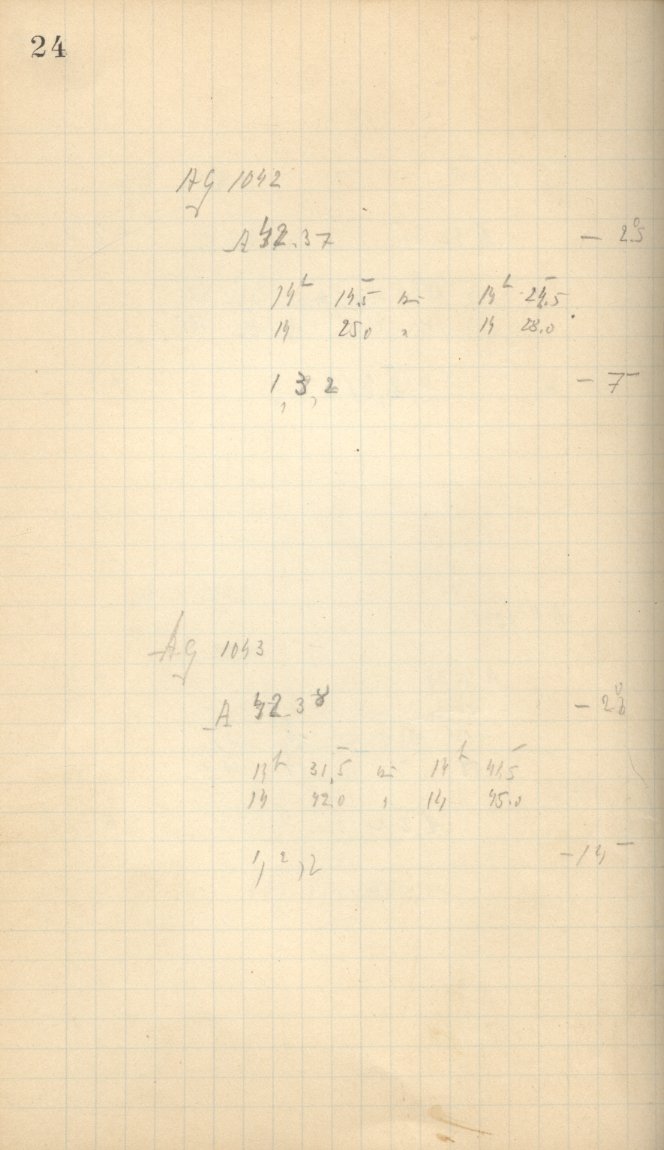 24
AG 1042
A 42.37 — 2°.5
14h 14.5m bis 14h 24.5m
14 25.0 " 14 28.0
1, 3, 2 — 7m
AG 1043
A 42.38
14h 31.5m bis 14h 41.5m
14 42.0 " 14 45.0
1, 2, 2 — 14m